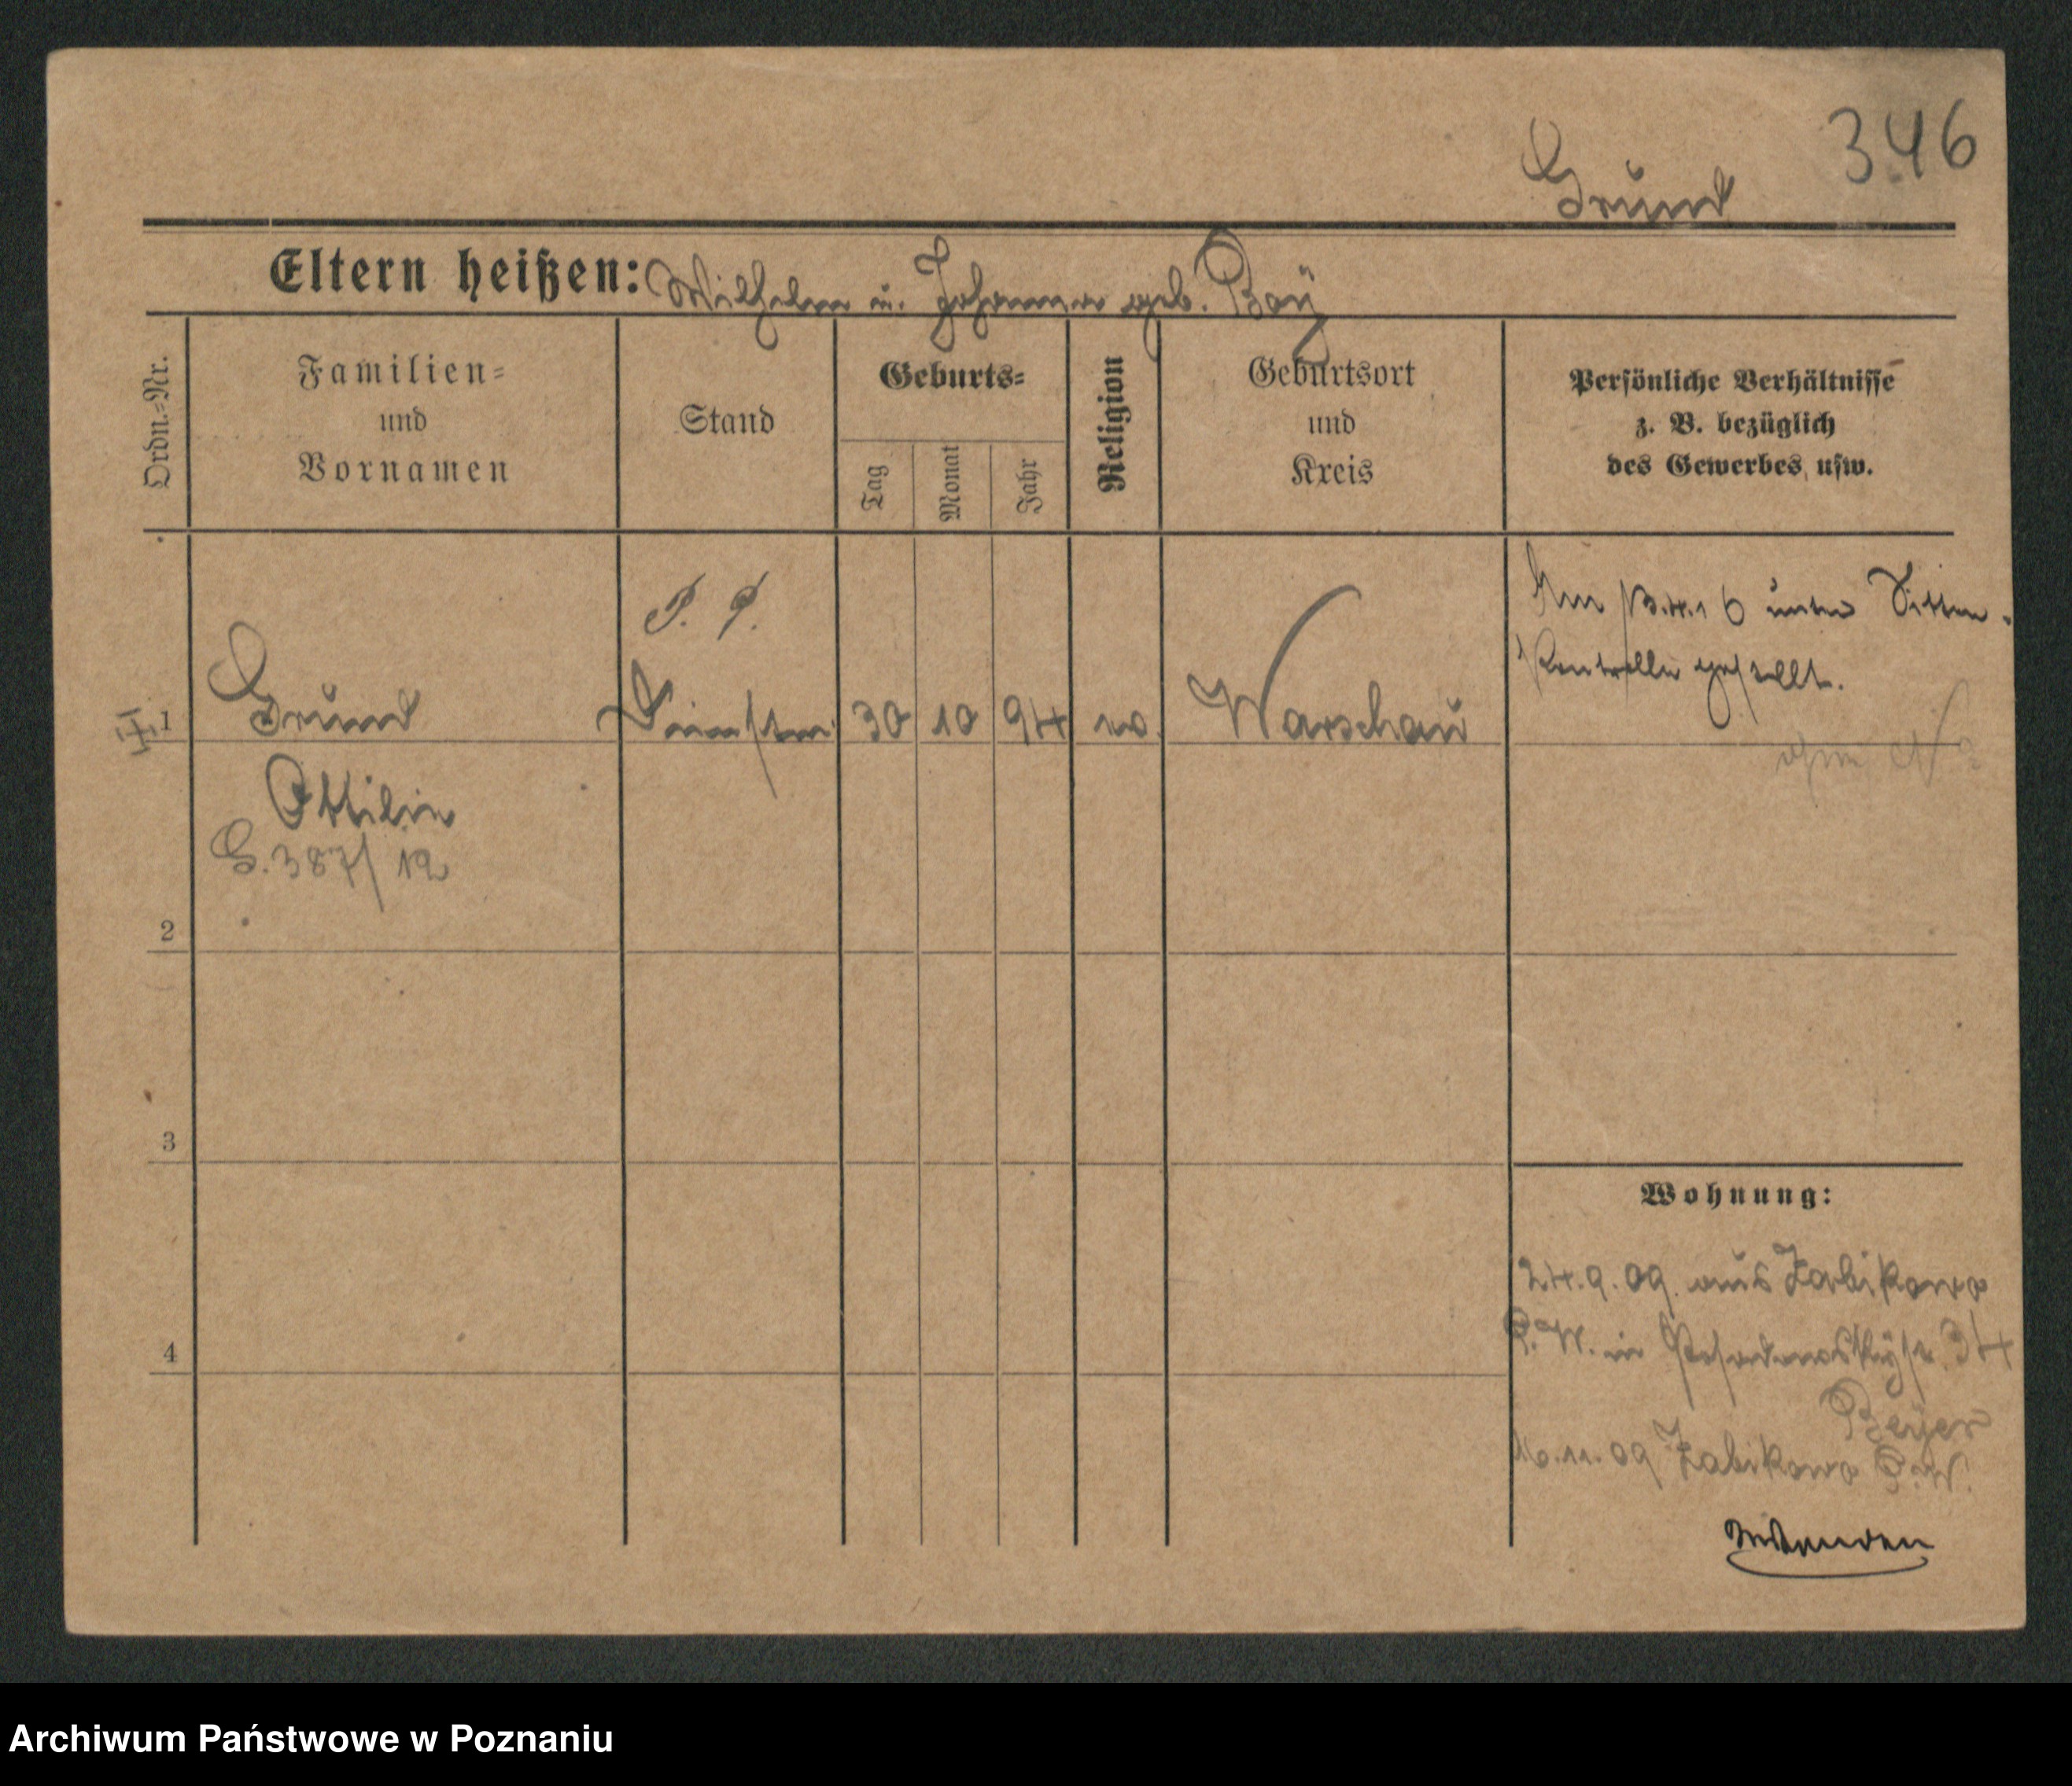 346
Grund
Eltern heißen: Wilhelm u. Johanna geb. Bay
Ordn.-Nr.
Familien-
und
Vornamen
Stand
Geburts-
Tag
Monat
Jahr
Religion
Geburtsort
und
Kreis
Persönliche Verhältnisse
z. B. bezüglich
des Gewerbes, usw.
Am 13.4.16 unter Sitten-
Kontrolle gestellt.
1 Grund 30 10 94 Warschau
Ottilie
G. 387/12
2
3
4
Wohnung:
24.9.09. aus Zabikowo
P.W. in 34
Beyer
16.11.09 Zabikowo P.W.
Archiwum Państwowe w Poznaniu